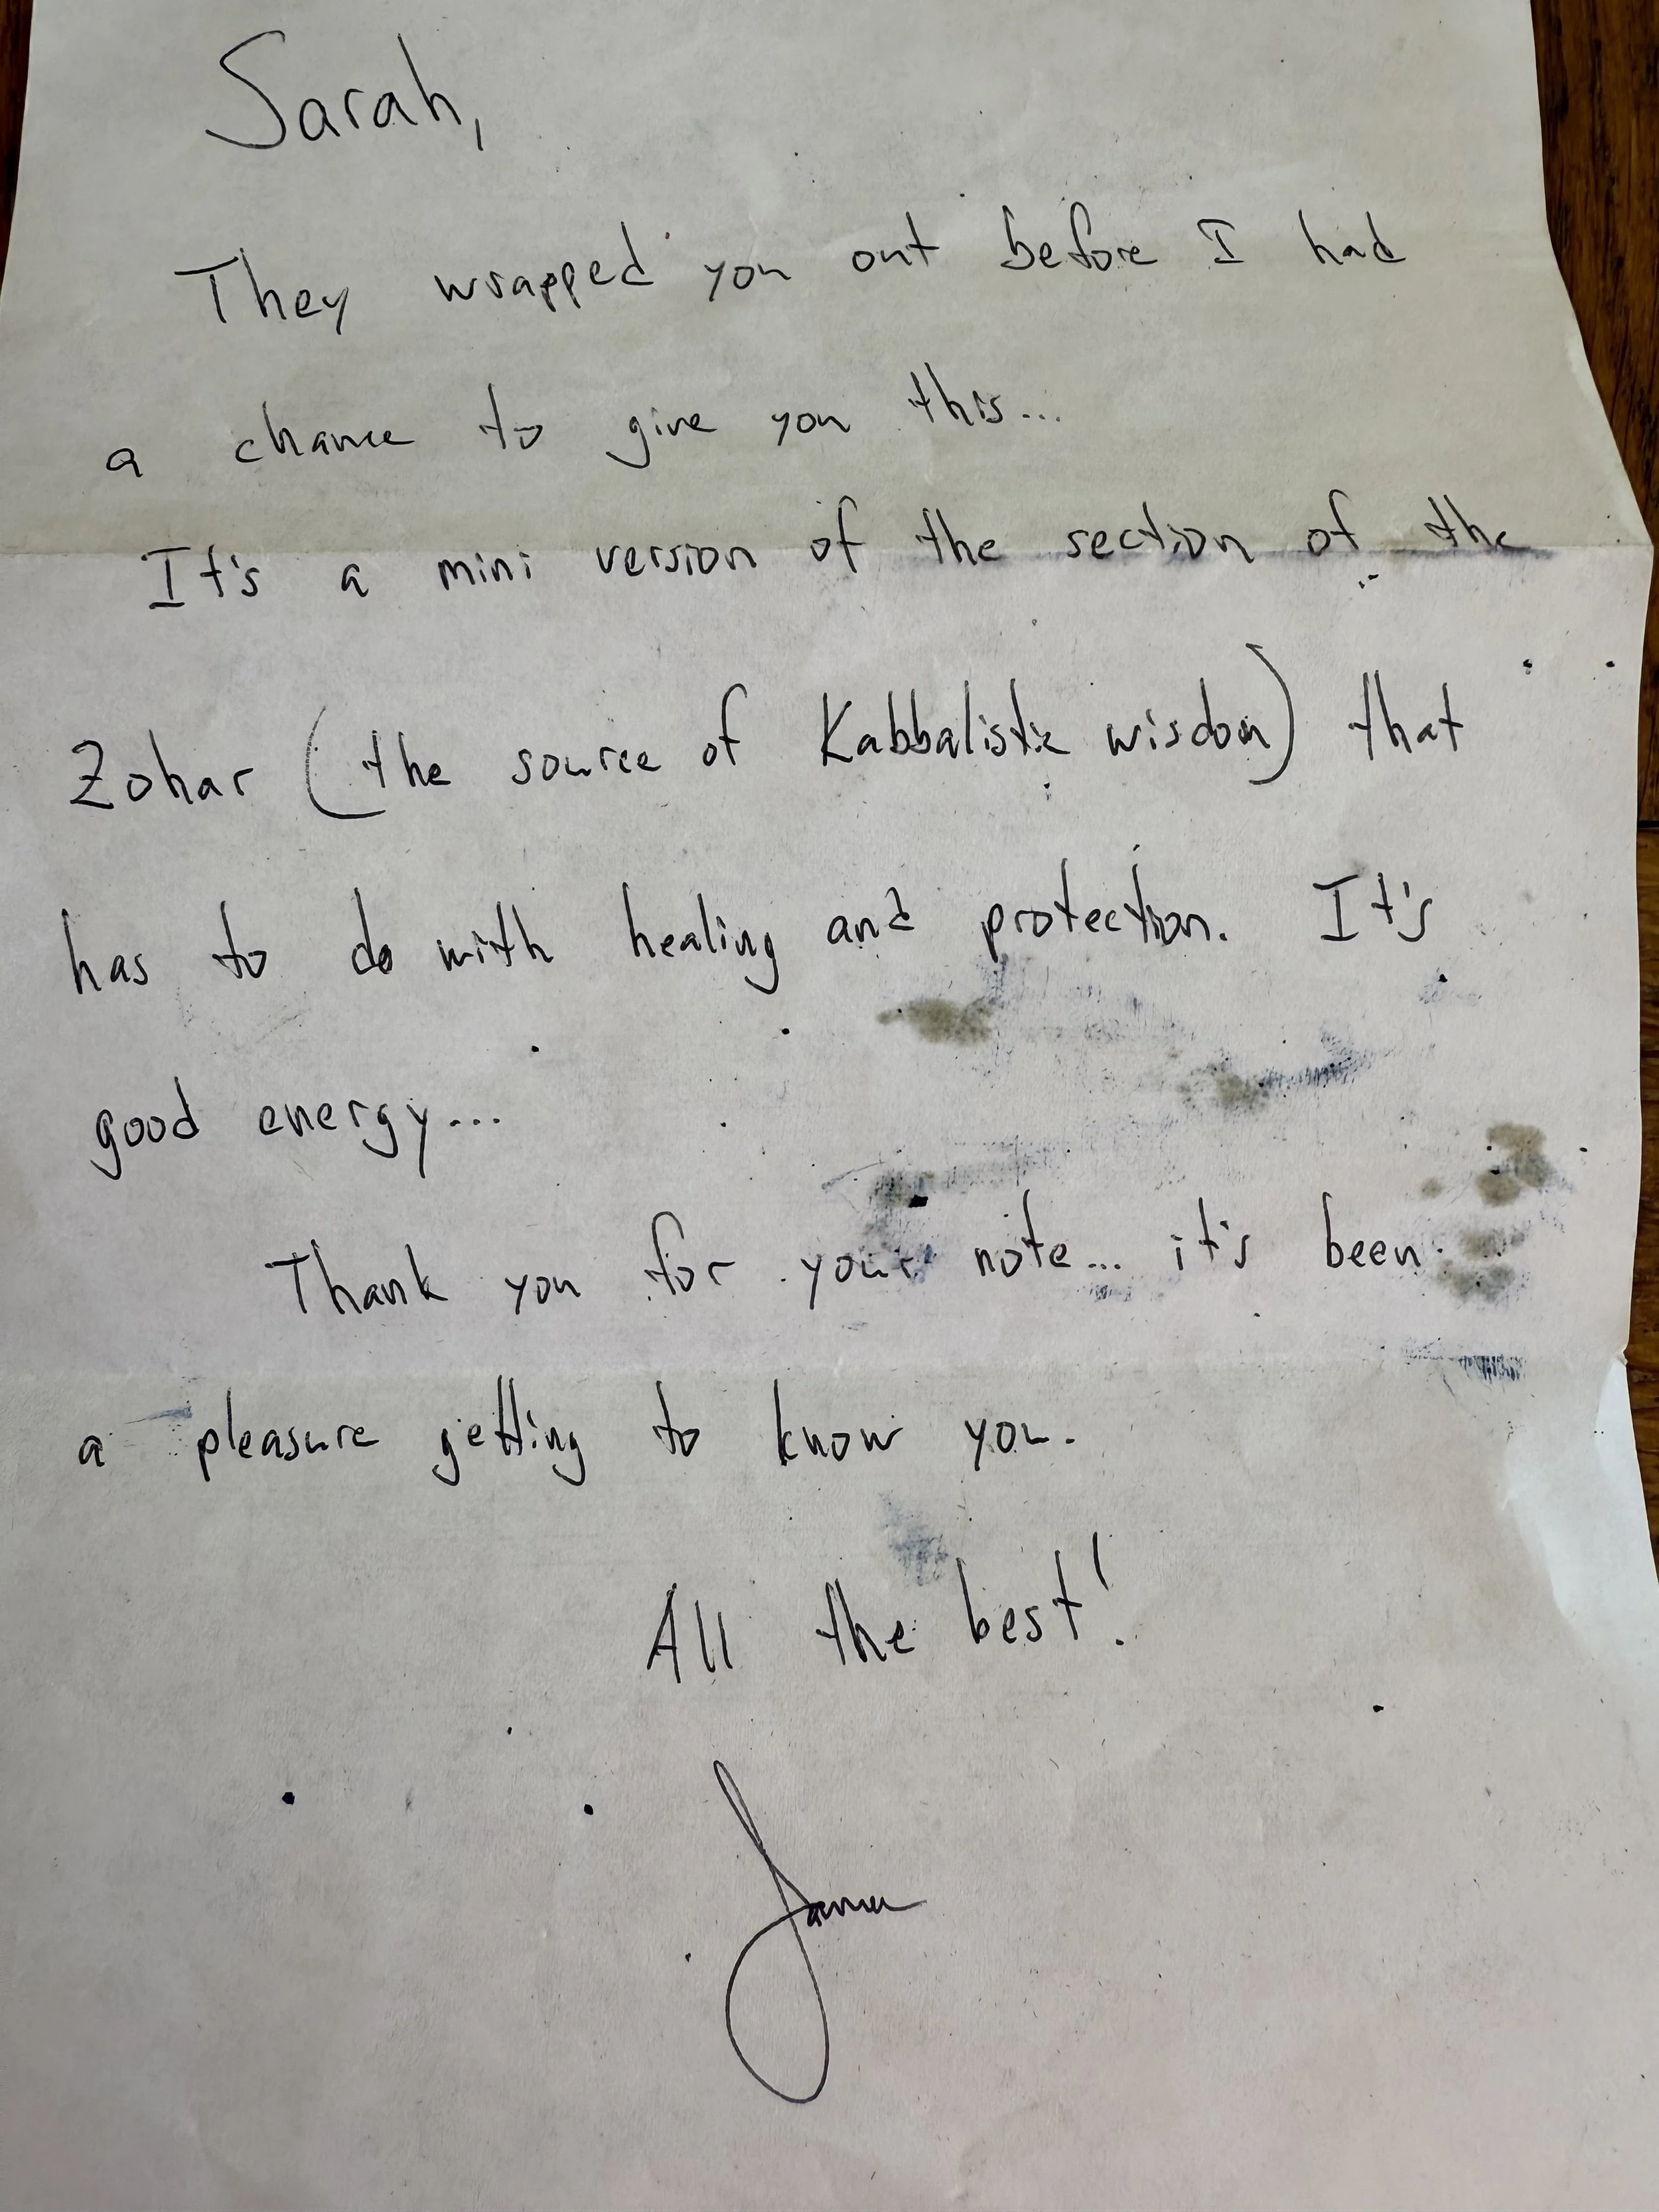 Sarah,
They wrapped you out before I had
a chance to give you this...
It's a mini version of the section of the
Zohar (the source of Kabbalistic wisdom) that
has to do with healing and protection. It's
good energy...
Thank you for your note... it's been
a pleasure getting to know you.
All the best!